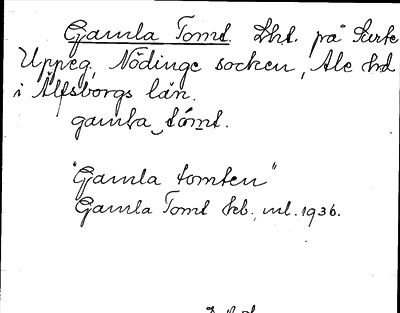 Gamla Tomt. Lht. på Surte
Uppeg., Nödinge socken, Ale hd
i Älfsborgs län.
gamla tómt.
"Gamla tomten"
Gamla Tomt kb., ml. 1936.